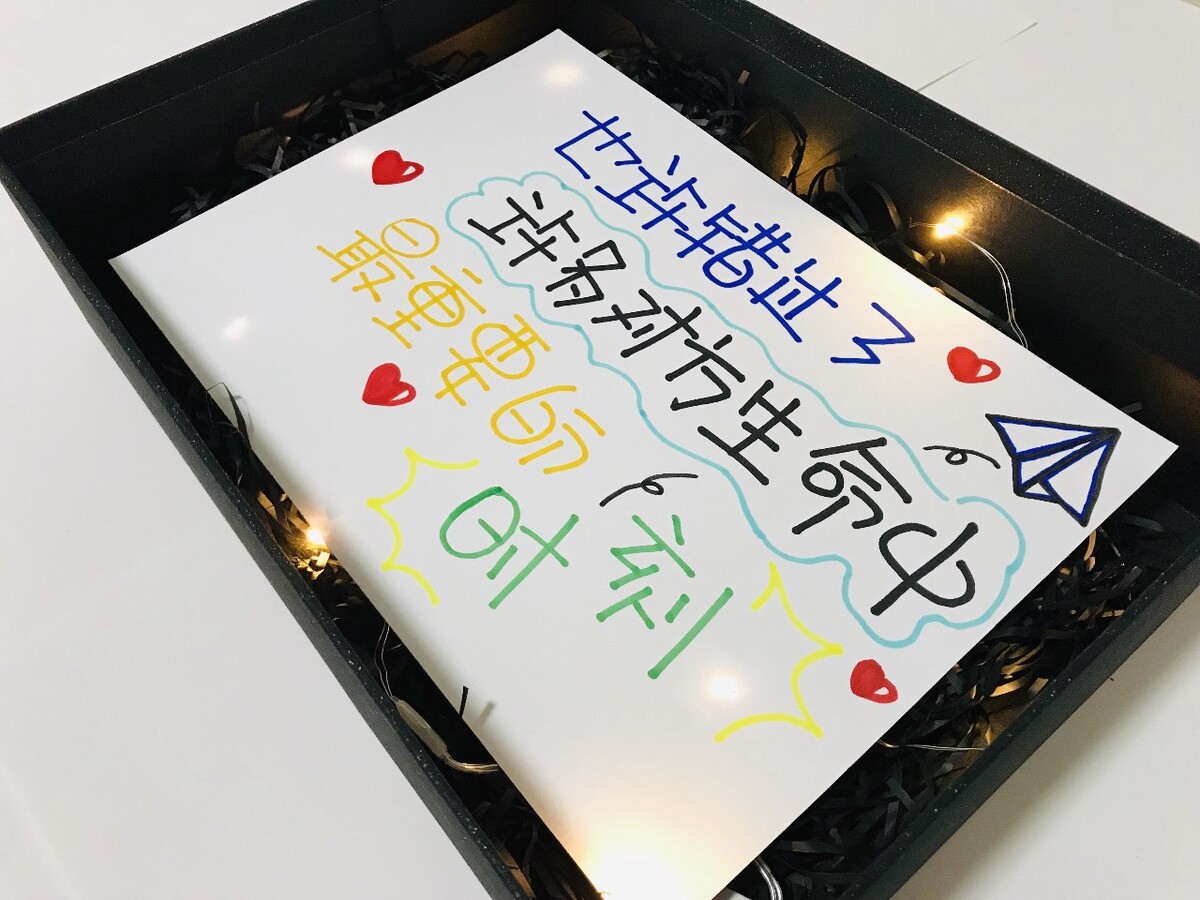 也许错过了
许多对方生命中
最重要的
时刻